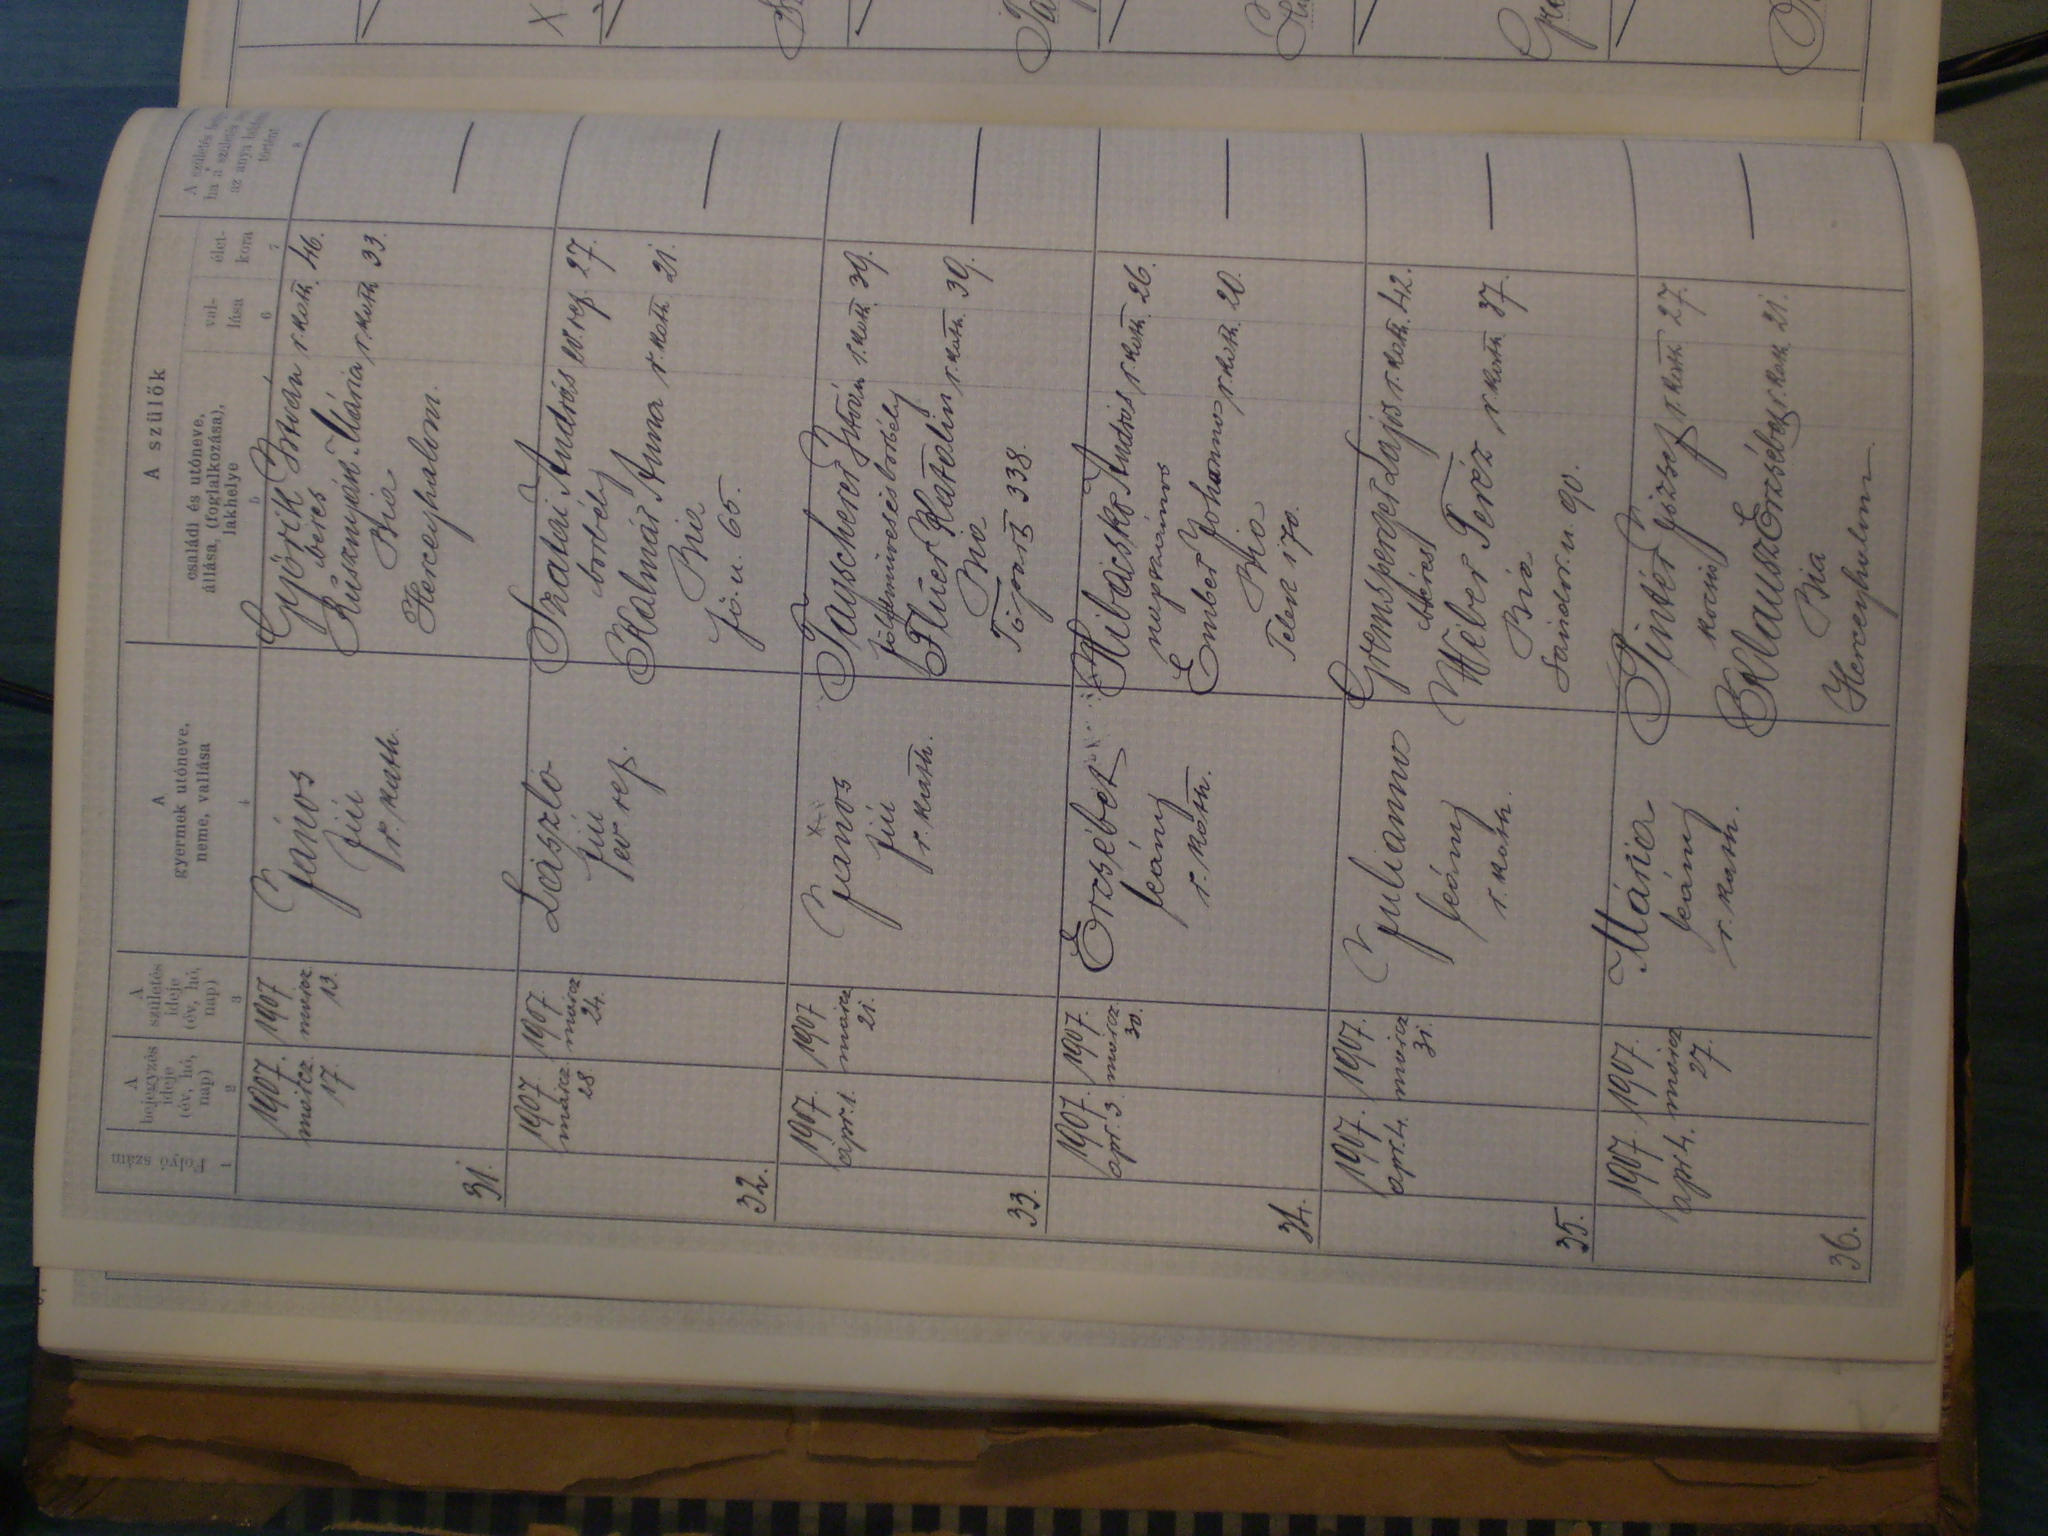 A szülők
Folyó szám
A
bejegyzés
ideje
(év, hó,
nap)
A
születés
ideje
(év, hó,
nap)
A
gyermek utóneve,
neme, vallása
családi és utóneve,
állása, (foglalkozása),
lakhelye
val-
lása
élet-
kora
A születés
ha a születés
az anya
történt
1
2
3
4
5
6
7
8
31.
1907.
márcz.
17.
1907
márcz.
13.
János
fiú
r. kath.
Györik István r. kath. 46.
béres
Mária r. kath. 33.
Bia
Herceghalom.
32.
1907.
márcz.
28.
1907.
márcz.
24.
László
fiú
ev. ref.
Szalai András ev. ref. 27.
borbély
Kalmár Anna r. kath. 21.
Bia
fő. u. 65.
33.
1907.
ápr. 1.
1907
márcz
21.
János
fiú
r. kath.
Tauscherer István r. kath. 39.
földmíves és borbély
Katalin r. kath. 39.
Bia
338.
34.
1907.
ápr. 3.
1907.
márcz
30.
Erzsébet
leány
r. kath.
András r. kath. 26.
napszámos
Ember Johanna r. kath. 20.
Bia
Telek 170.
35.
1907.
ápr. 4.
1907.
márcz
31.
Julianna
leány
r. kath.
Gremsperger Lajos r. kath. 42.
béres
Wéber Teréz r. kath. 37.
Bia
Sándor u. 90.
36.
1907.
ápr. 4.
1907.
márcz
27.
Mária
leány
r. kath.
Pintér József r. kath. 27.
kocsis
Klausz Erzsébet r. kath. 21.
Bia
Herceghalom